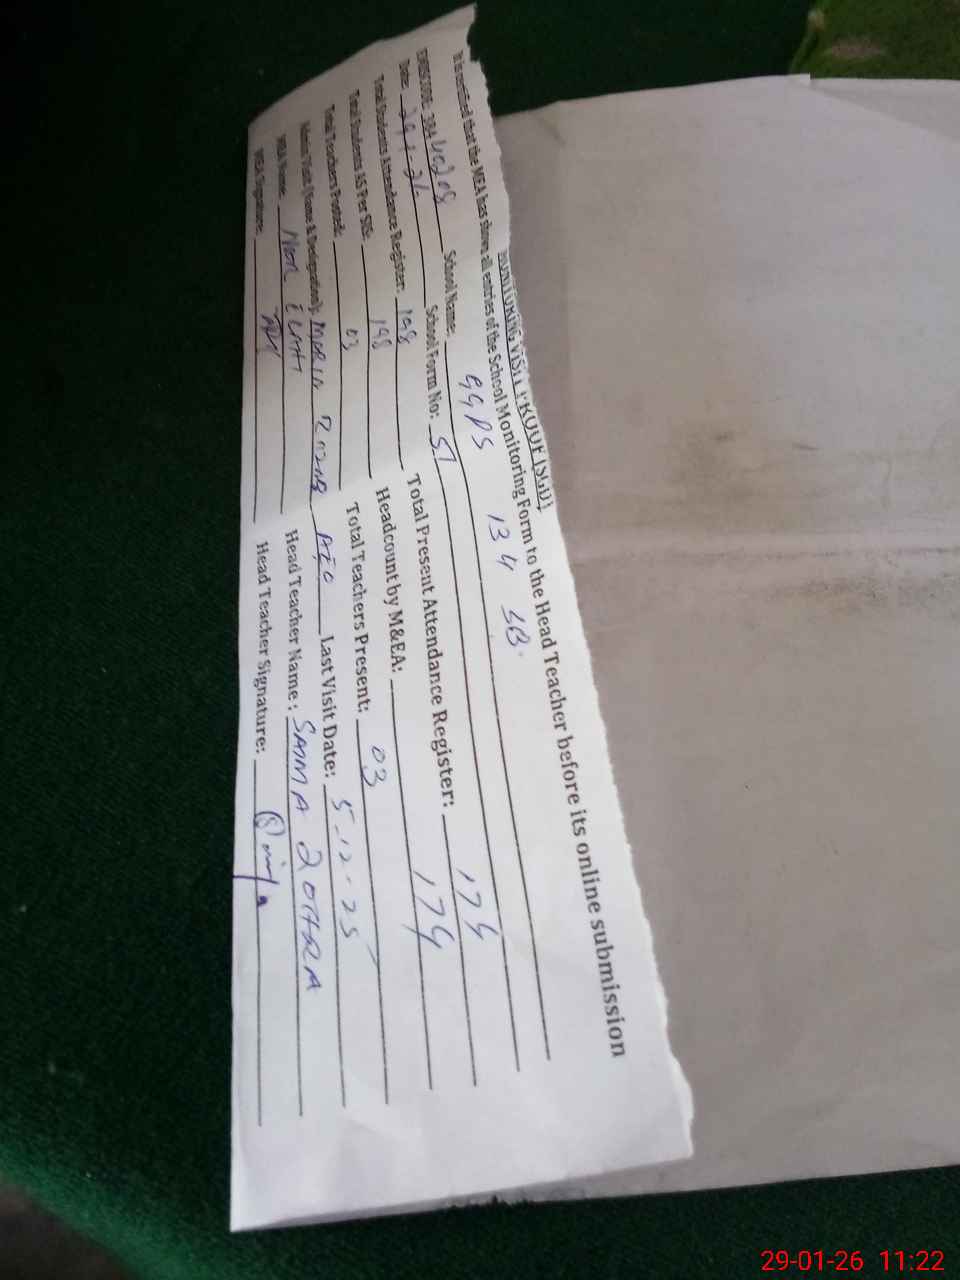 MONITORING VISIT PROOF (SGD)
It is certified that the MEA has show all entries of the School Monitoring Form to the Head Teacher before its online submission
EMISCODE: 384 School Name: GGPS 134 SB.
Date: School Form No: 51
Total Students Attendance Register: 198 Total Present Attendance Register: 174
Total Students AS Per SIS: 198 Headcount by M&EA: 174
Total Teachers Posted: 03 Total Teachers Present: 03
Main Visit (Name & Designation): MORIA AEO Last Visit Date: 5-12-25
MEA Name: NOOR ELAHI Head Teacher Name: SAIMA ZOHRA
MEA Signature: Head Teacher Signature:
29-01-26 11:22